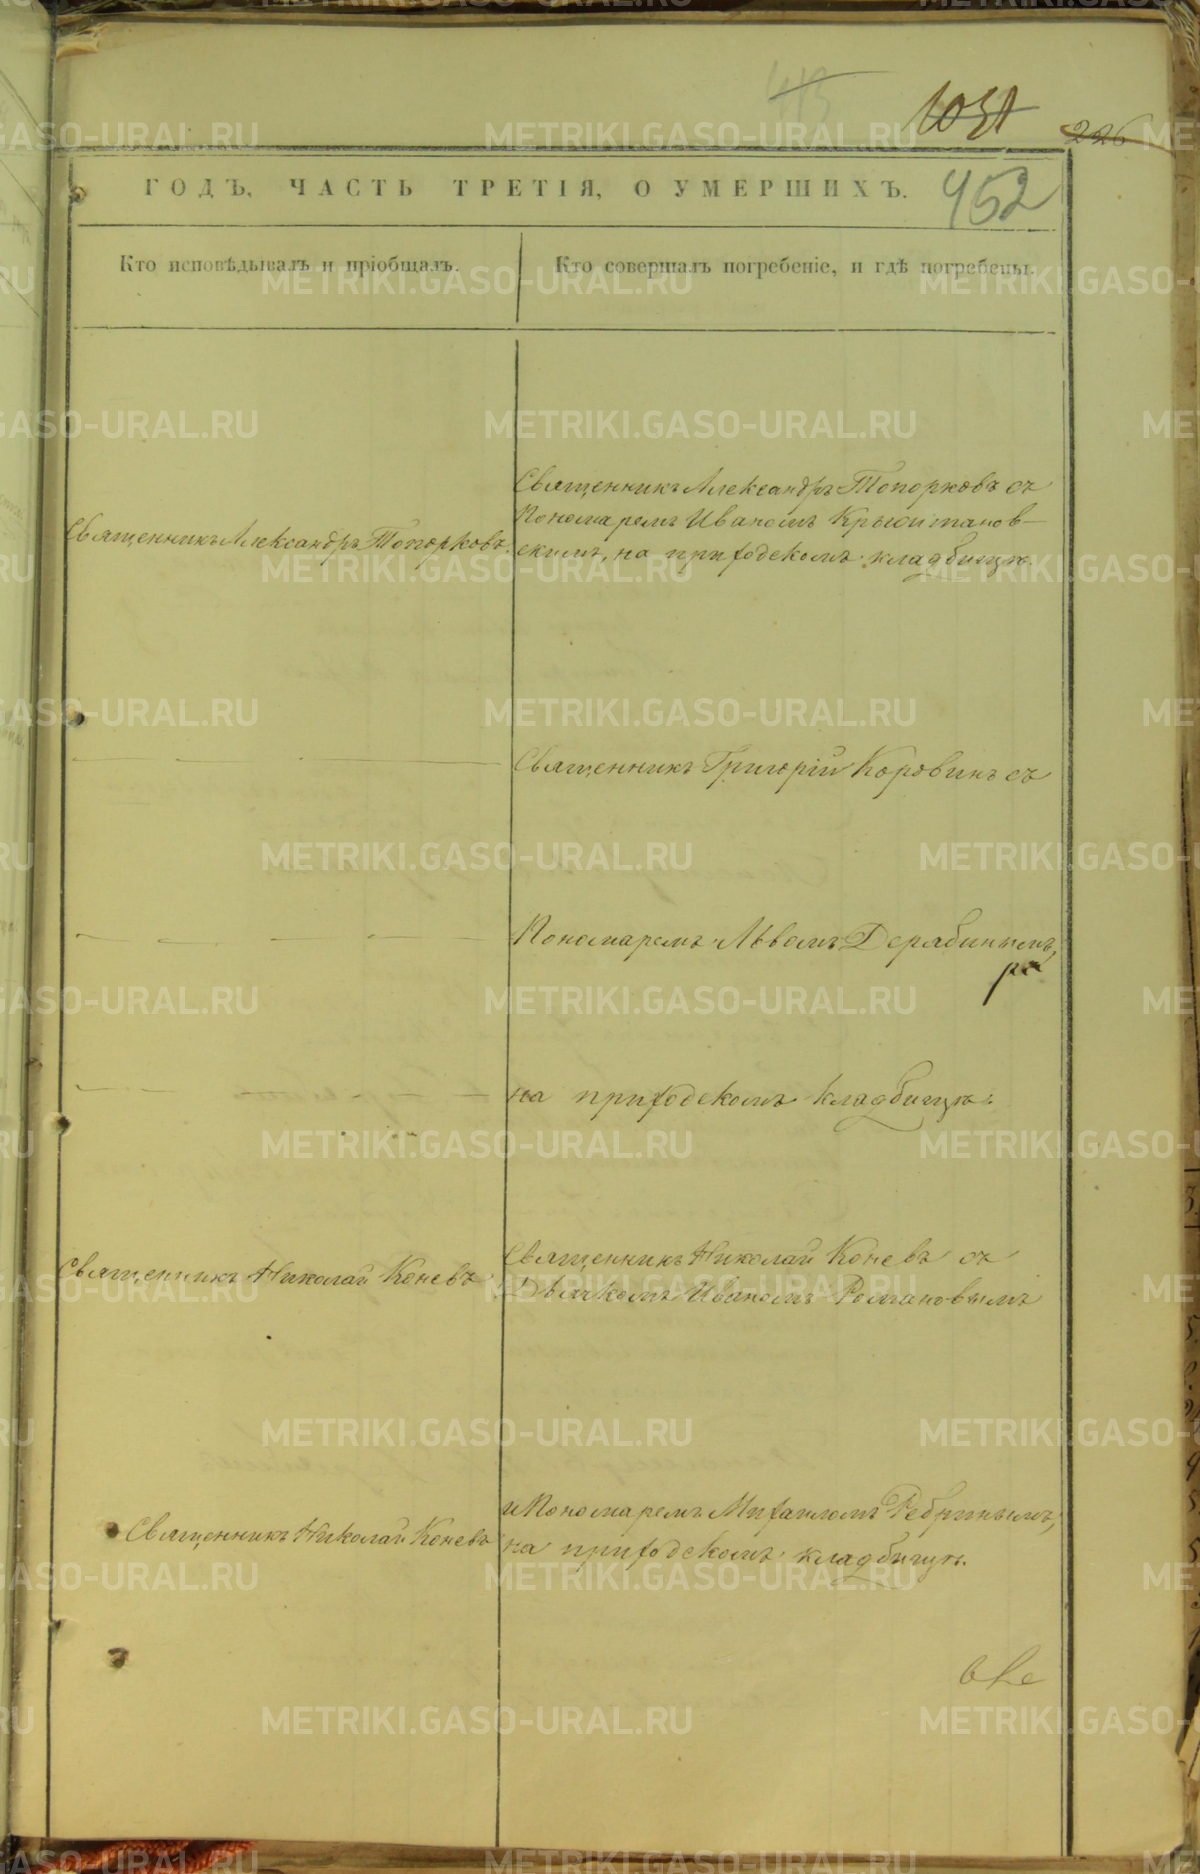 413
1031
226
452
ГОДЪ, ЧАСТЬ ТРЕТІЯ, О УМЕРШИХЪ.
Кто исповѣдывалъ и пріобщалъ.
Кто совершалъ погребеніе, и гдѣ погребены.
Священникъ Александръ Топорковъ.
Священникъ Александръ Топорковъ съ
Пономаремъ Иваномъ
скимъ, на приходскомъ кладбищѣ.
Священникъ Григорій Коровинъ съ
Пономаремъ Львомъ Дерябинымъ,
на приходскомъ кладбищѣ.
Священникъ Николай Коневъ
Священникъ Николай Коневъ съ
Дьячкомъ Иваномъ Романовымъ
Священникъ Николай Коневъ
и Пономаремъ Михаиломъ Ребринымъ,
на приходскомъ кладбищѣ.
METRIKI.GASO-URAL.RU